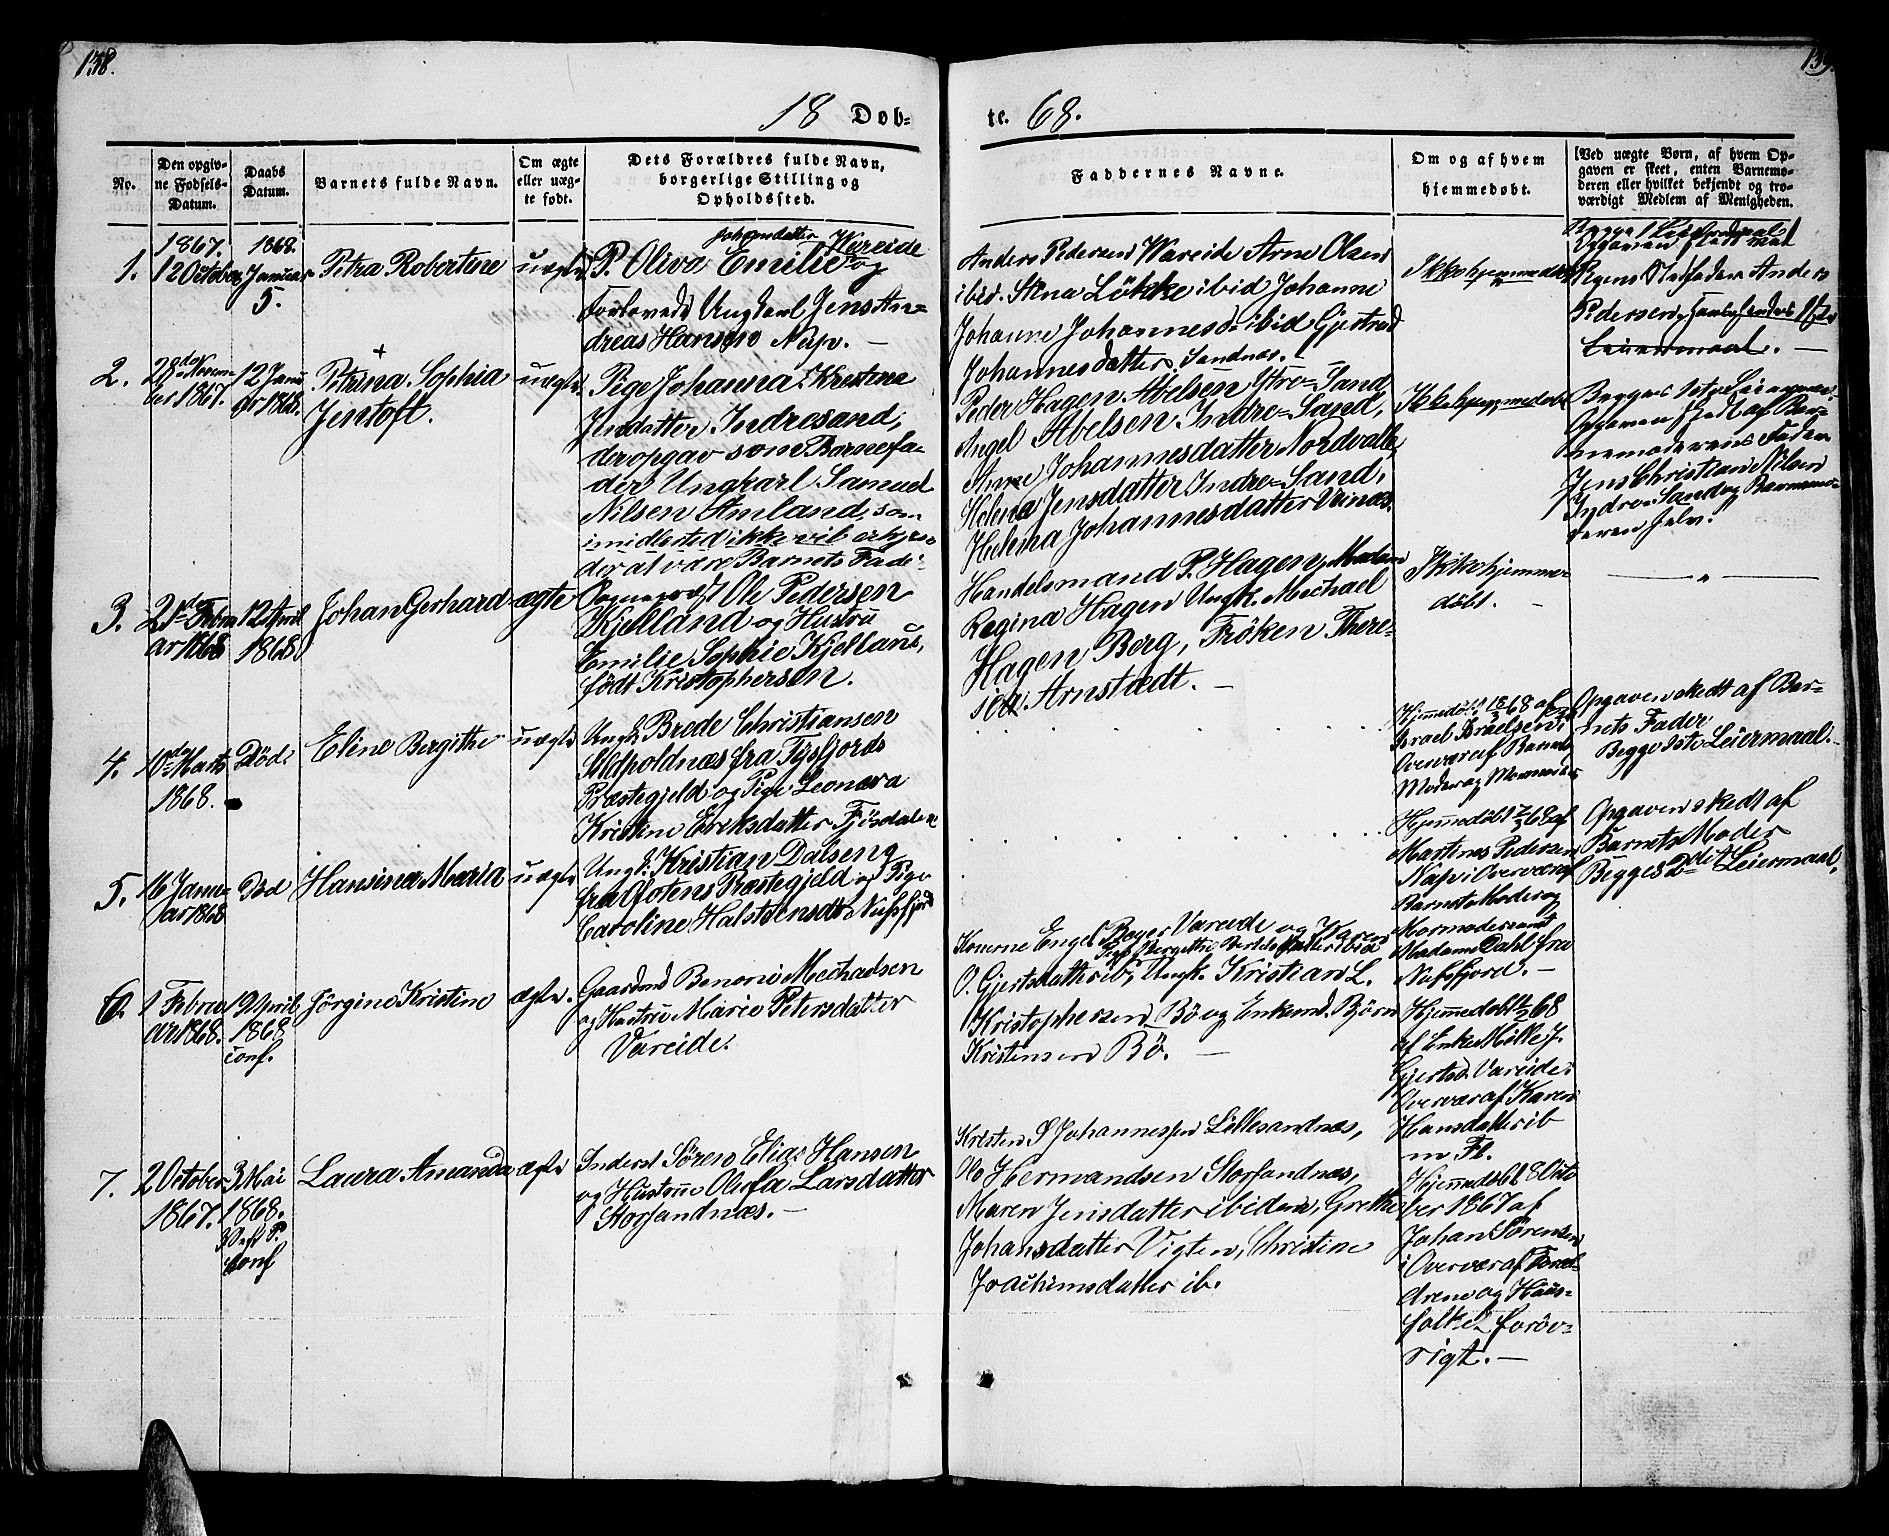 138.
139.
18 Døb-
te. 68.
No.
Den opgiv-
ne Fødsels-
Datum.
Daabs
Datum.
Barnets fulde Navn.
Om ægte
eller uæg-
te født.
Dets Forældres fulde Navn,
borgerlige Stilling og
Opholdssted.
Faddernes Navne.
Om og af hvem
hjemmedøbt.
Ved uægte Børn, af hvem Op-
gaven er skeet, enten Barnemo-
deren eller hvilket bekjendt og tro-
værdigt Medlem af Menigheden.
1.
1867.
12 October
1868.
Januar
5.
Petra Robertine
uægte
Johansdatter Wareide
P. Olive Emilie og
Forlovede Ungkarl Jens An-
dreas Hansen Nusv. —
Anders Pedersen Wareide Arne Olsen
ibid. Stina Løkke ibid Johanne
Johanne Johannesd. ibid Gjertrud
Johannesdatter Sandnæs. —
Ikke hjemmedøbt
Pigens Stedfader Anders
Pedersen
Leiermaal. —
2.
28de Novem-
ber 1867.
12 Janu
ar 1868.
+
Petrina Sophia
Jentoft.
uægte
Pige Johanna Krestine
Jensdatter Indresand,
der opgav som Barnefa-
der Ungkarl Samuel
Nilsen Amland, som
imidlertid ikke vil erkjen-
der at være Barnets Fader
Peder Hagen Abelsen Ytre-Sand
Angel Abelsen Indre-Sand,
Anne Johannesdatter Nordvalle,
Helena Jensdatter Indre-Sand,
Helena Johannesdatter Veinæs.
Ikke hjemmedøbt
Begges 1ste Leiermaal
Opgaven skedt af Bar-
nemoderens Fader
Jens Christian Nilsen
Indre-Sand og Barnemo-
deren selv.
3.
21de Febru
ar 1868
12 April
1868.
Johan Gerhard
ægte
Ole Pedersen
Kjelland og Hustru
Emilie Sophie Kjelland,
født Kristophersen.
Handelsmand P. Hagen, Madam
Regina Hagen Ungk. Mechael
Hagen Berg, Frøken There-
sia Arnstædt. —
Ikke hjemme
døbt. —
— " —
4.
10de Marts
1868.
Død
Eline Bergithe
uægte
Ungk. Brede Christiansen
fra Tysfjords
Præstegjeld og Pige Leonara
Kristine Eriksdatter Fjøsdalen
Hjemmedøbt 68 af
Israel Israelsen
Overvær af Barnets
Moder og Mormoder
Opgaven skedt af Bar-
nets Fader
Begges 1ste Leiermaal. —
5.
16 Janu-
ar 1868
Død
Hansina Maria
uægte
Ungk. Kristian Dalseng
fra Ofotens Præstegjeld og Pige
Caroline Halstensdt Nusfjord
Hjemmedøbt 68 af
Martines Pedersen
Næs i Overvær af
Barnets Moder og
Mormoder samt
Madam Dahl fra
Nusfjord. —
Opgaven skedt af
Barnets Moder
Begges 2det Leiermaal.
6.
1 Febru
ar 1868.
19 April
1868
conf.
Jørgine Kristine
ægte.
Gaardmd Benoni Mechaelsen
og Hustru Marie Petersdatter
Vareide.
Konerne Engel Beyer Vareide og Karen
Pige Bergitte Bertelsdatter ibid
O. Gjertsdatter ib, Ungk. Kristian L.
Kristophersen Bø og Enkemd. Bjørn
Kristensen Bø. —
Hjemmedøbt 68
af Enke Mille J.
Gjertsd. Vareide i
Overvær af Karen
Hansdatter ib
m Fl.
7.
2 October
1867.
3 Mai
1868.
3 S eft P.
conf
Laura Amanda
ægte
Inderst Søren Elias Hansen
og Hustrue Olefa Larsdatter
Storsandnæs. —
Kristen S Johannessen Lillesandnæs,
Ole Hermandsen Storsandnæs,
Maren Jensdatter ibidem, Grethe
Johansdatter Vigten, Christine
Joachimsdatter ib.
Hjemmedøbt 8 Octo
ber 1867 af
Johan Sørensen
i Overvær af Foræl-
drene og Huus-
folket forøv-
rigt. —